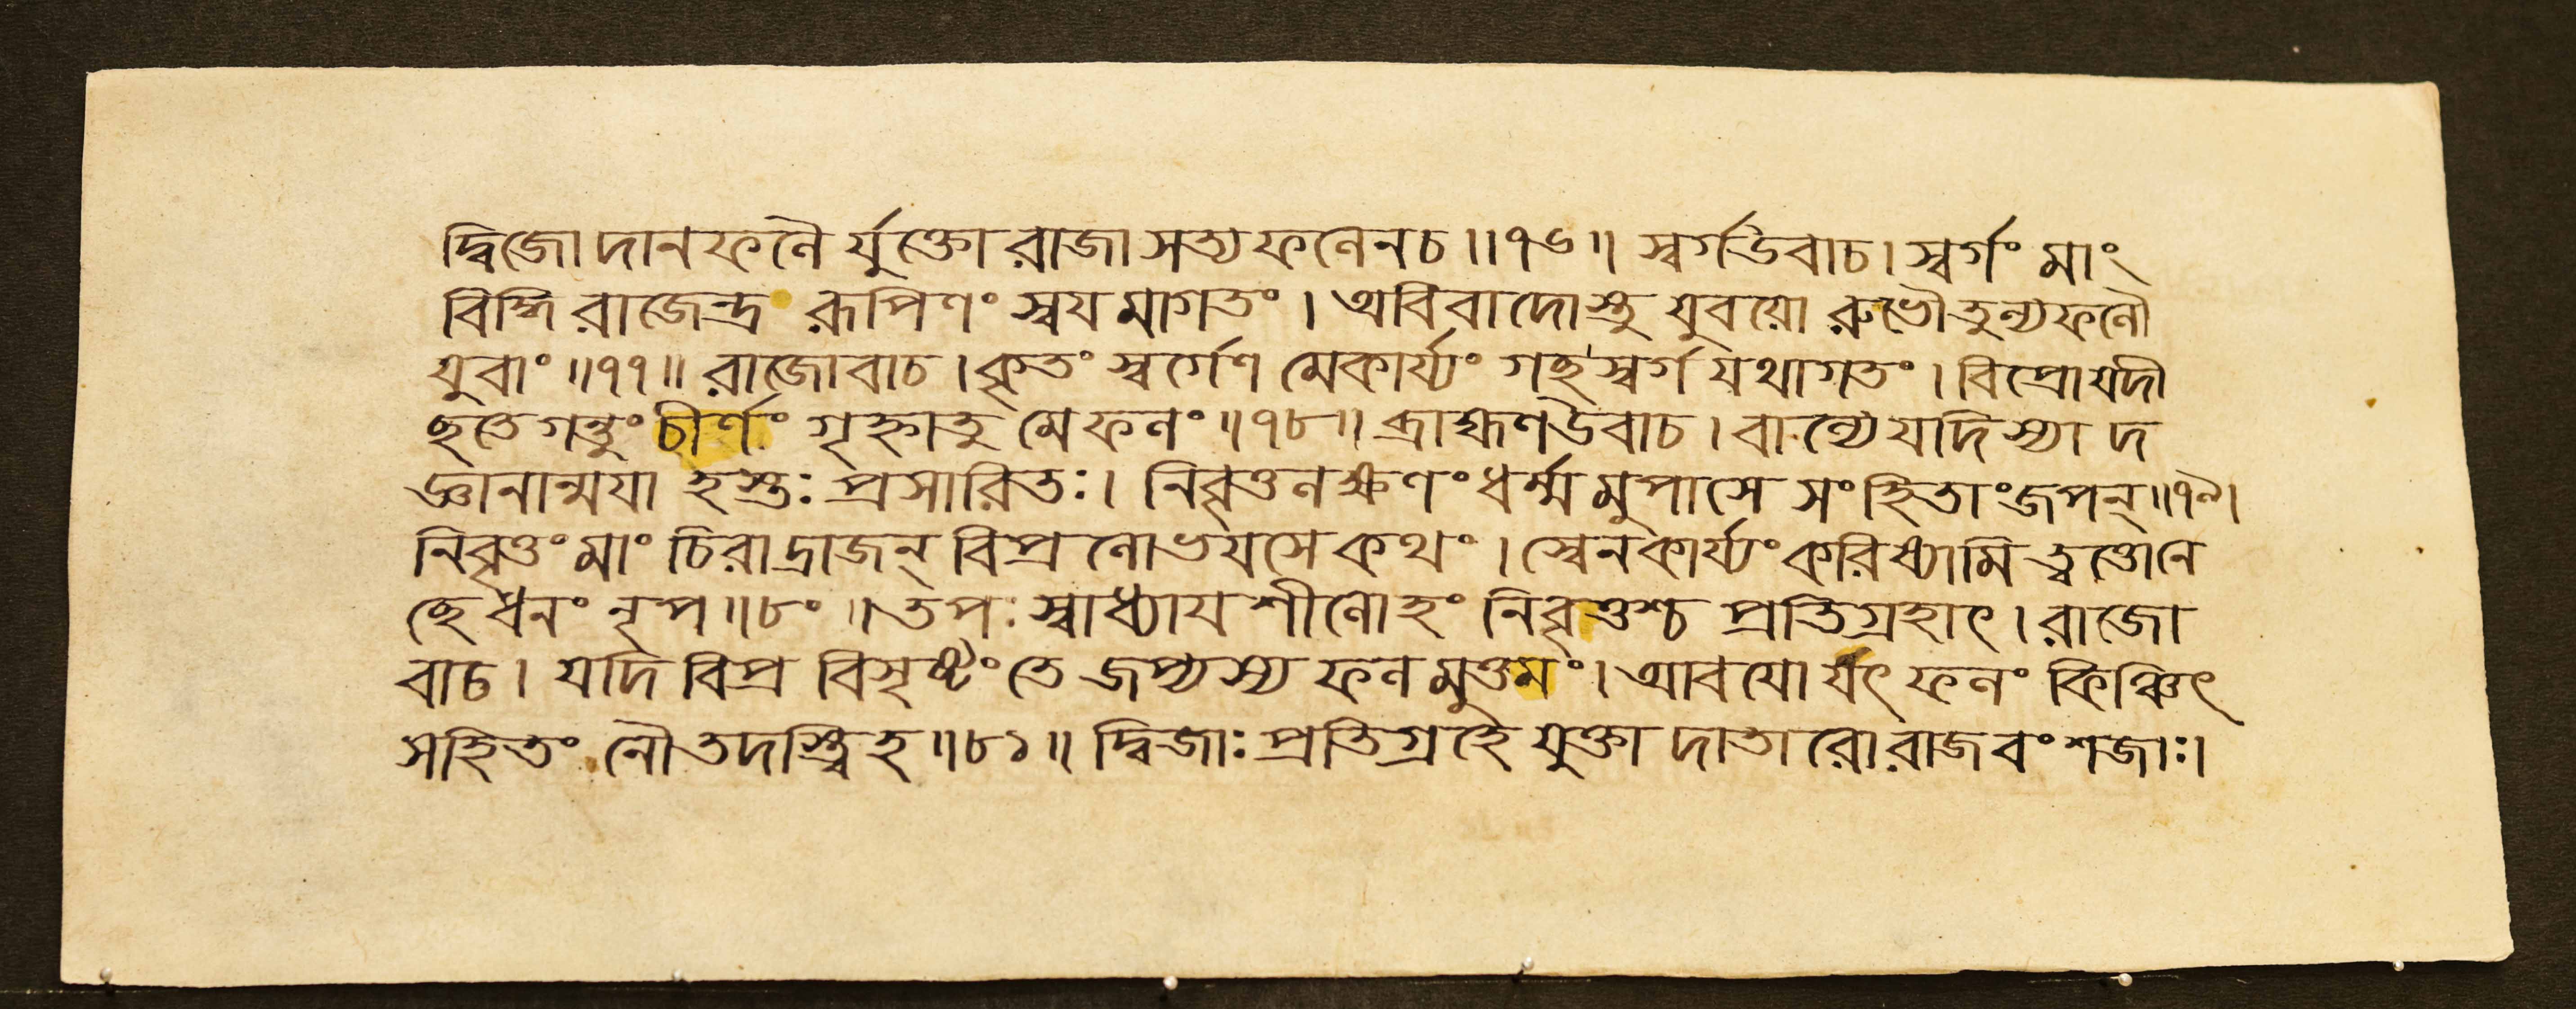 দ্বিজো দানফলৈ র্যুক্তো রাজা সত্যফলেনচ॥৭৬॥ স্বর্গউবাচ। স্বর্গং মাং
বিদ্ধি রাজেন্দ্র রূপিণং স্বয়মাগতং। অবিবাদোস্তু যুবয়ো রুভৌতুল্যফলৌ
যুবাং॥৭৭॥ রাজোবাচ। কৃতং স্বর্গেণ মেকার্য্যং গচ্ছস্বর্গ যথাগতং। বিপ্রোযদী
ছতে গন্তুং চীর্ণং গৃহ্নাতু মে ফলং॥৭৮॥ ব্রাহ্মণউবাচ। বাল্যে যদি স্যাদ
জ্ঞানান্ময়া হস্তঃ প্রসারিতঃ। নিবৃত্তলক্ষণং ধর্ম্মমুপাসে সংহিতাং জপন্॥৭৯।
নিবৃত্তং মাং চিরাদ্রাজন্ বিপ্রলোভয়সে কথং। স্বেনকার্য্যং করিষ্যামি ত্বত্তোনে
ছে ধনং নৃপ॥৮০॥ তপঃস্বাধ্যায়শীলোহং নিবৃত্তশ্চ প্রতিগ্রহাৎ। রাজো
বাচ। যদি বিপ্র বিসৃষ্টং তে জপ্যস্য ফলমুত্তমং। আবয়ো র্যৎ ফলং কিঞ্চিৎ
সহিতং নৌ তদস্ত্বিহ॥৮১॥ দ্বিজাঃ প্রতিগ্রহে যুক্তা দাতারো রাজবংশজাঃ।